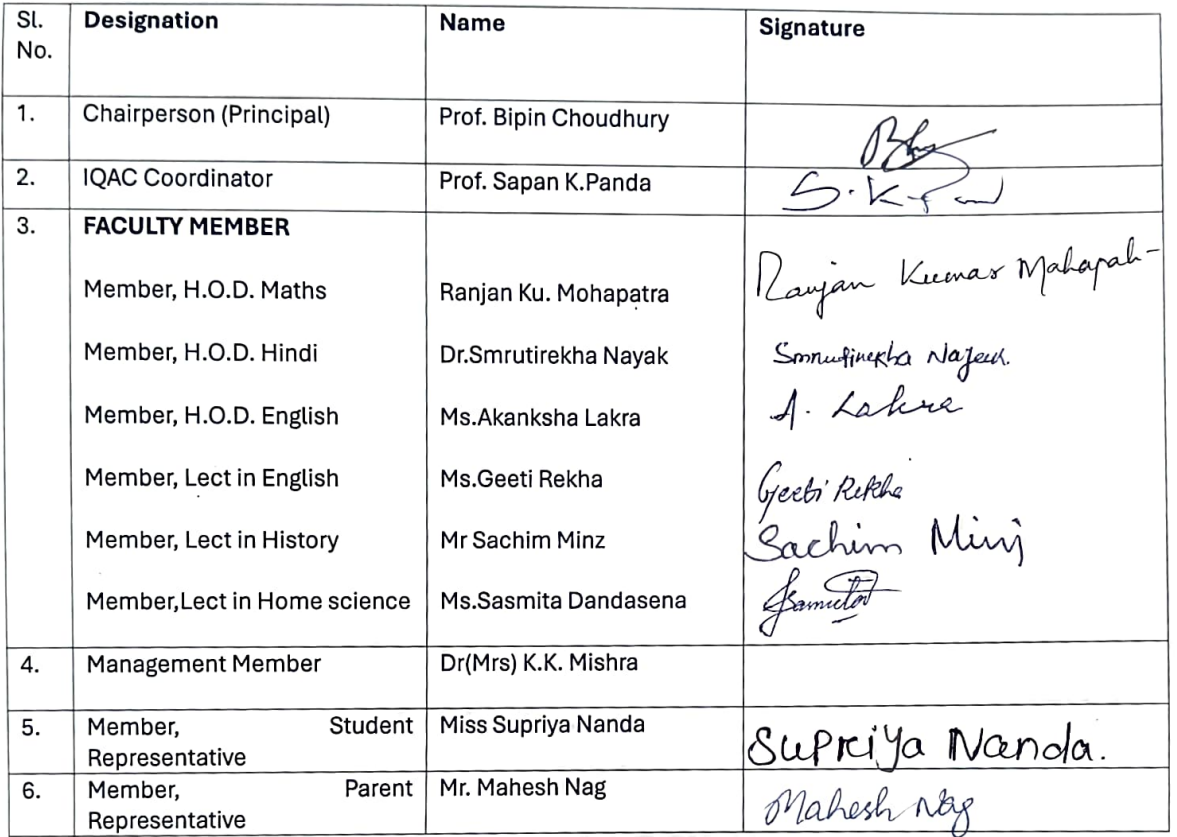 Sl. No. Designation Name Signature
1. Chairperson (Principal) Prof. Bipin Choudhury
2. IQAC Coordinator Prof. Sapan K.Panda
3. FACULTY MEMBER
Member, H.O.D. Maths Ranjan Ku. Mohapatra Ranjan Kumar
Member, H.O.D. Hindi Dr.Smrutirekha Nayak Smrutirekha Nayak.
Member, H.O.D. English Ms.Akanksha Lakra A. Lakra
Member, Lect in English Ms.Geeti Rekha Geeti Rekha
Member, Lect in History Mr Sachim Minz Sachim Minj
Member,Lect in Home science Ms.Sasmita Dandasena
4. Management Member Dr(Mrs) K.K. Mishra
5. Member, Student Representative Miss Supriya Nanda Supriya Nanda.
6. Member, Parent Representative Mr. Mahesh Nag Mahesh Nag